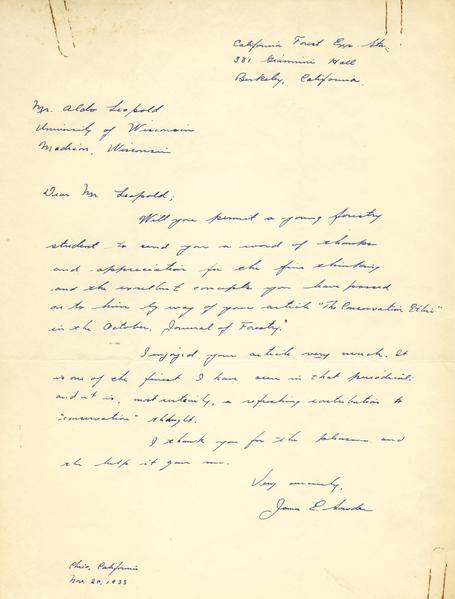 California Forest Exp. Sta.
331 Giannini Hall
Berkeley, California.
Mr. Aldo Leopold
University of Wisconsin
Madison, Wisconsin
Dear Mr Leopold;
Will you permit a young forestry
student to send you a word of thanks
and appreciation for the fine thinking
and the excellent concepts you have passed
on to him by way of your article "The Conservation Ethic"
in the October, Journal of Forestry."
I enjoyed your article very much. It
is one of the finest I have seen in that periodical;
and it is, most certainly, a refreshing contribution to
"conservation" thought.
I thank you for the pleasure and
the help it gave me.
Very sincerely,
James E.
Chico, California
Nov. 20, 1933